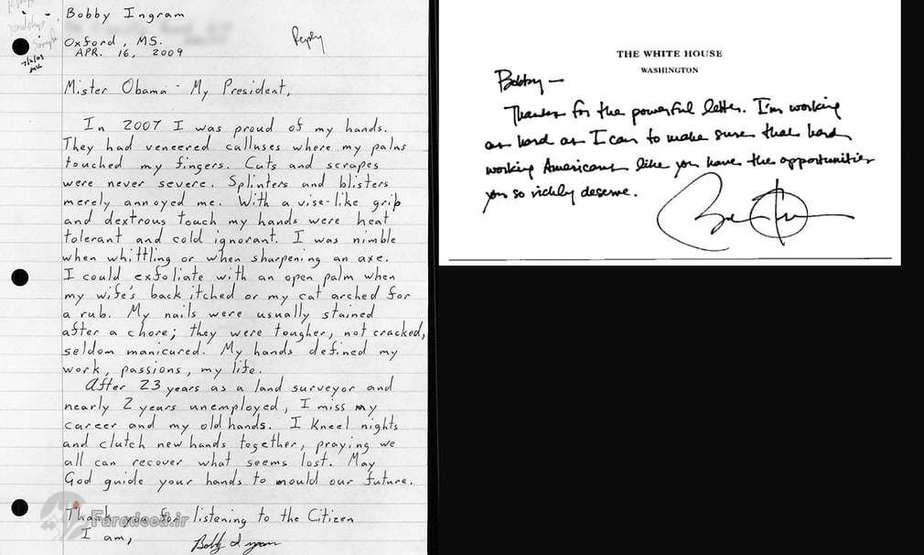 Bobby Ingram
Oxford, MS.
APR. 16, 2009
Reply
Mister Obama - My President,
In 2007 I was proud of my hands.
They had veneered calluses where my palms
touched my fingers. Cuts and scrapes
were never severe. Splinters and blisters
merely annoyed me. With a vise-like grip
and dextrous touch my hands were heat
tolerant and cold ignorant. I was nimble
when whittling or when sharpening an axe.
I could exfoliate with an open palm when
my wife's back itched or my cat arched for
a rub. My nails were usually stained
after a chore; they were tougher, not cracked,
seldom manicured. My hands defined my
work, passions, my life.
After 23 years as a land surveyor and
nearly 2 years unemployed, I miss my
career and my old hands. I kneel nights
and clutch new hands together, praying we
all can recover what seems lost. May
God guide your hands to mould our future.
Thank you for listening to the Citizen
I am,
Bobby Ingram
Faradeed.ir
THE WHITE HOUSE
WASHINGTON
Bobby —
Thanks for the powerful letter. I'm working
as hard as I can to make sure that hard
working Americans like you have the opportunities
you so richly deserve.